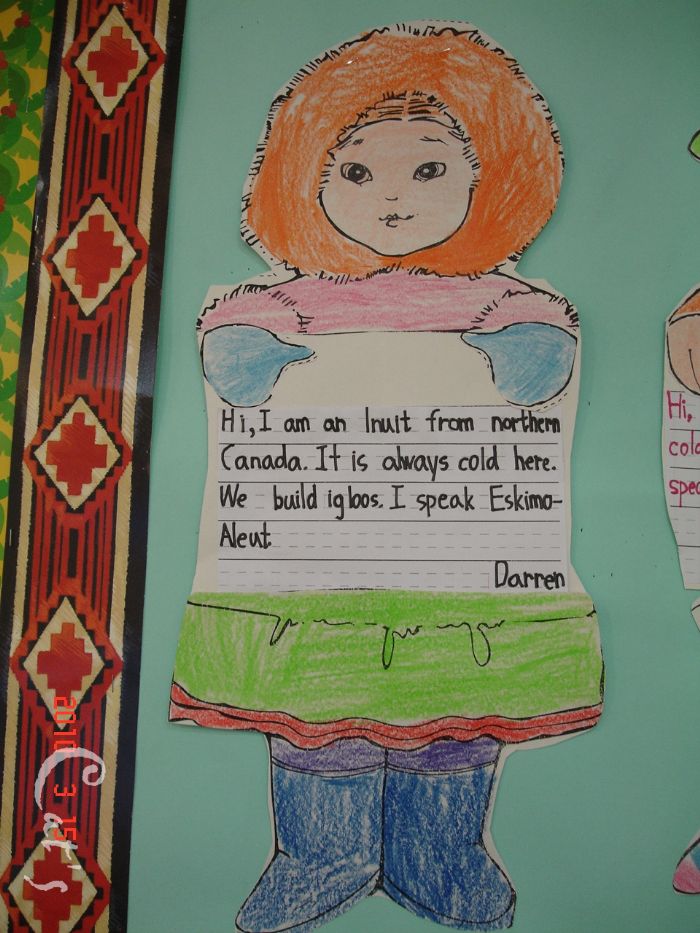 Hi, I am an Inuit from northern
Canada. It is always cold here.
We build igloos. I speak Eskimo-
Aleut
Darren
Hi,
cold
spea
2010 3 15
Cat's